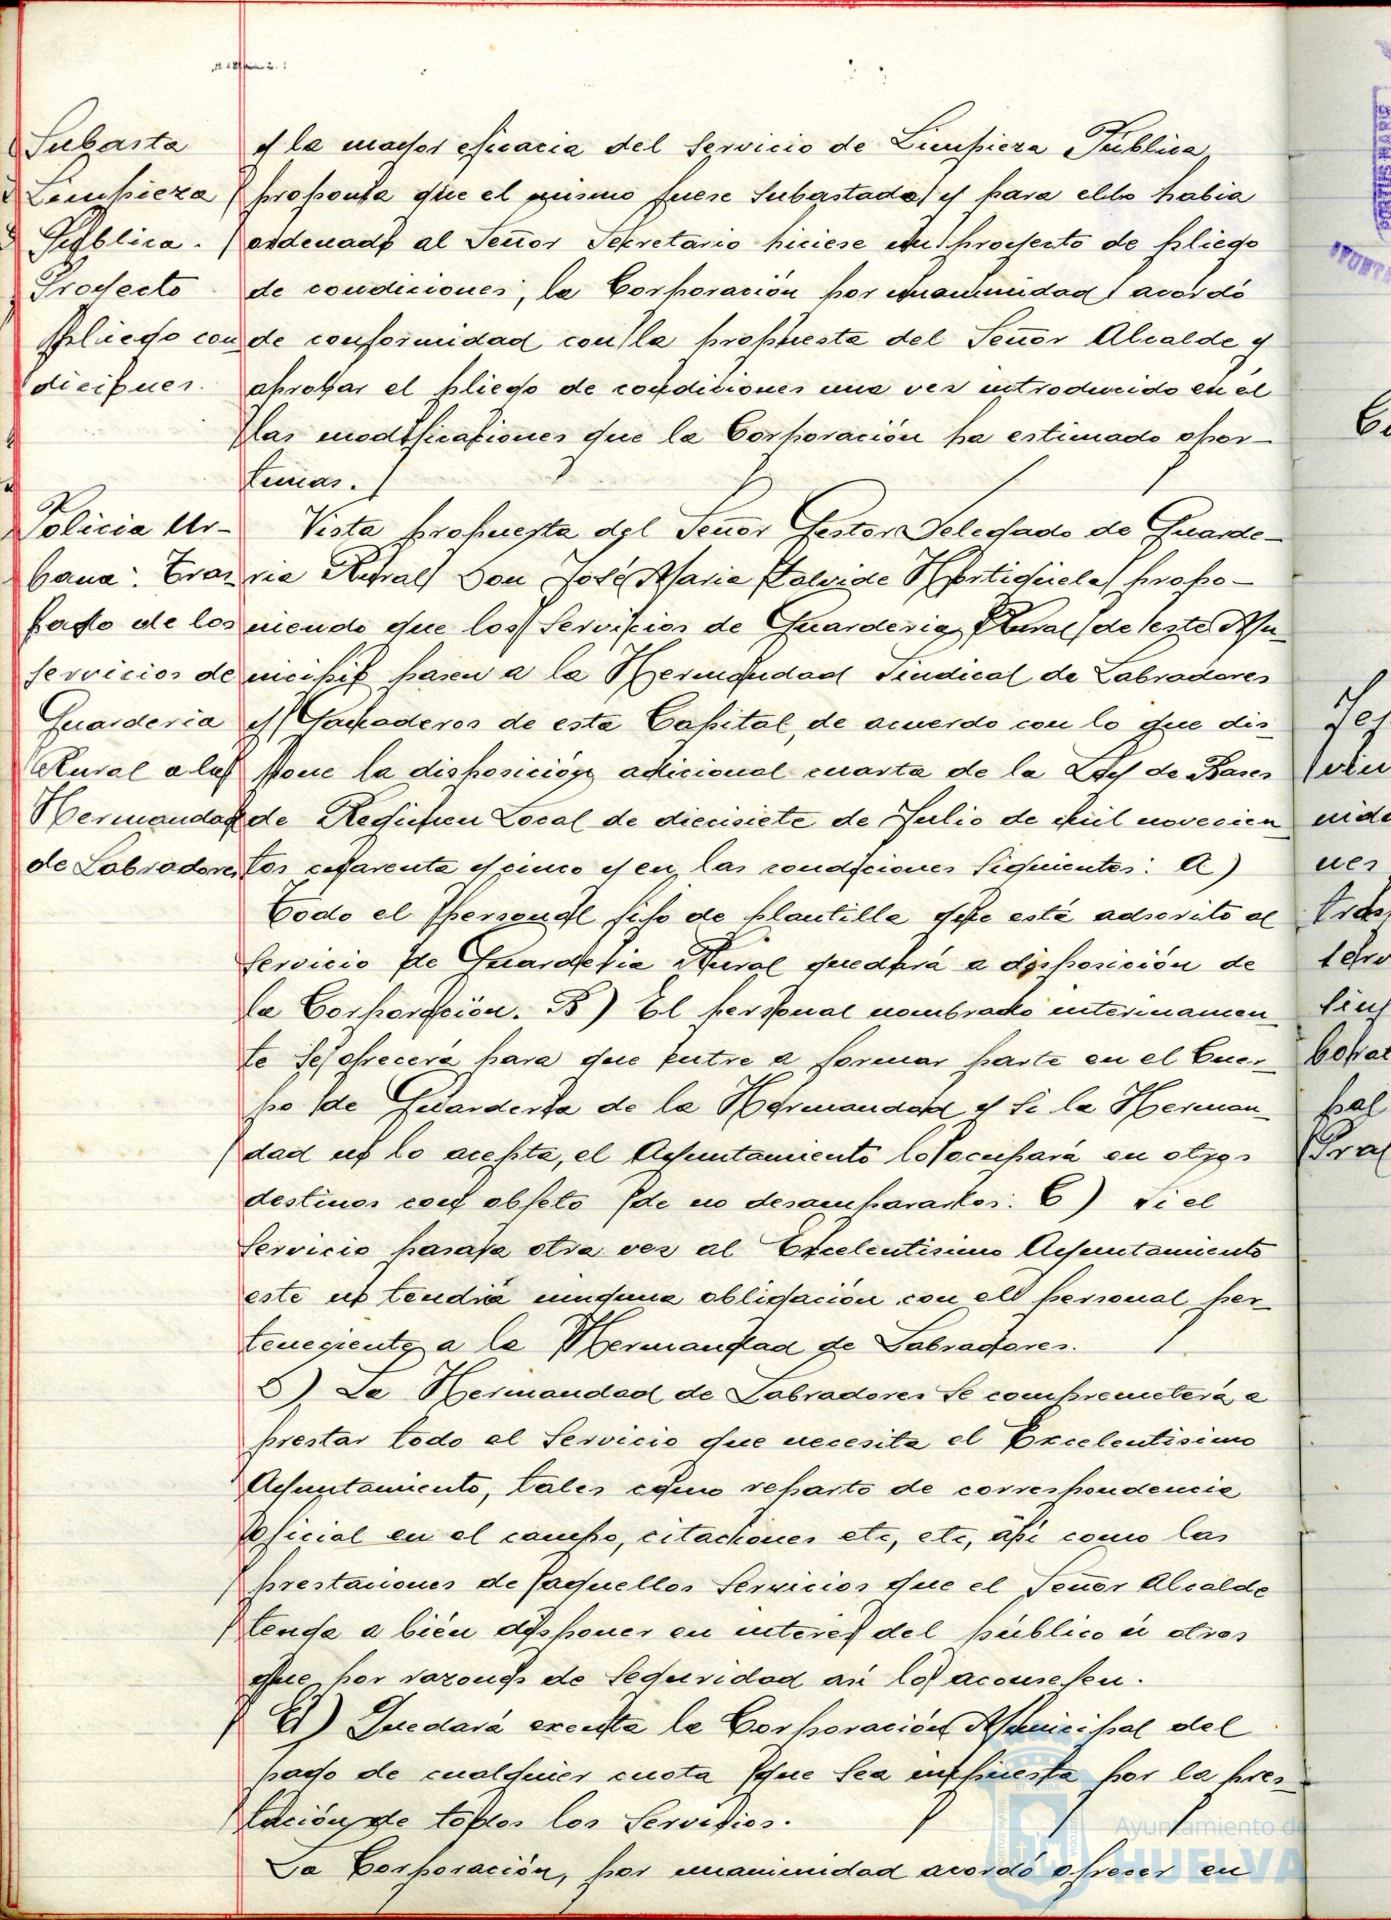 Subasta
Limpieza
Pública.
Proyecto
pliego con
diciones.
y la mayor eficacia del Servicio de Limpieza Pública,
proponía que el mismo fuese Subastado y para ello habia
ordenado al Señor Secretario hiciese un proyecto de pliego
de condiciones, la Corporación por unanimidad acordó
de conformidad con la propuesta del Señor Alcalde y
aprobar el pliego de condiciones una vez introducido en él
las modificaciones que la Corporación ha estimado opor-
tunas.
Policia Ur-
bana: Tras-
paso de los
servicios de
Guarderia
Rural a la
Hermandad
de Labradores
Vista propuesta del Señor Gestor Delegado de Guarde-
ria Rural Don José Maria Hortigüela propo-
niendo que los Servicios de Guarderia Rural de este Mu-
nicipio pasen a la Hermandad Sindical de Labradores
y Ganaderos de esta Capital, de acuerdo con lo que dis-
pone la disposición adicional cuarta de la Ley de Bases
de Regimen Local de diecisiete de Julio de mil novecien
tos cuarenta y cinco y en las condiciones siguientes: A)
Todo el personal fijo de plantilla que está adscrito al
Servicio de Guarderia Rural quedará a disposición de
la Corporación. B) El personal nombrado interinamen-
te se ofrecerá para que entre a formar parte en el Cuer-
po de Guarderia de la Hermandad y si la Herman-
dad no lo acepta, el Ayuntamiento lo ocupará en otros
destinos con objeto de no desampararlos: C) Si el
Servicio pasara otra vez al Excelentisimo Ayuntamiento
este no tendrá ninguna obligación con el personal per-
teneciente a la Hermandad de Labradores.
D) La Hermandad de Labradores se comprometerá a
prestar todo el Servicio que necesita el Excelentisimo
Ayuntamiento, tales como reparto de correspondencia
oficial en el campo, citaciones etc, etc, asi como las
prestaciones de aquellos Servicios que el Señor Alcalde
tenga a bién disponer en interes del público ú otros
que por razones de Seguridad asi lo aconsejen.
E) Quedará exenta la Corporación Municipal del
pago de cualquier cuota que sea impuesta por la pres-
tación de todos los Servicios.
La Corporación, por unanimidad acordó ofrecer en
Ayuntamiento de
HUELVA